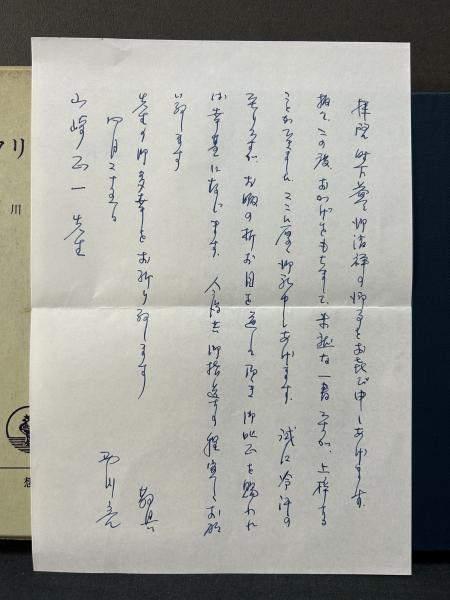 拝啓 時下益々御清祥の御事とお喜び申しあげます。
扨て、この度、おかげをもちまして、未熟な一書ですが、上梓する
ことができました。ここに厚く御礼申しあげます。誠に冷汗の
至りですが、お暇の折お目を通して頂き御叱正を賜われ
ば幸甚に存じます。今後共御指導の程宜しくお願
い致します
先生の御多幸をお祈り致します
敬具
四月二十五日
山崎正一先生
リ
川
想